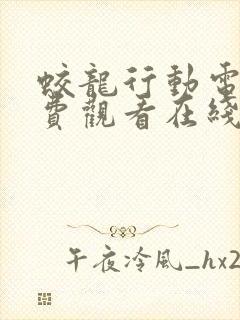 蛟龍行動電
費觀看在綫
午夜冷風_hx2